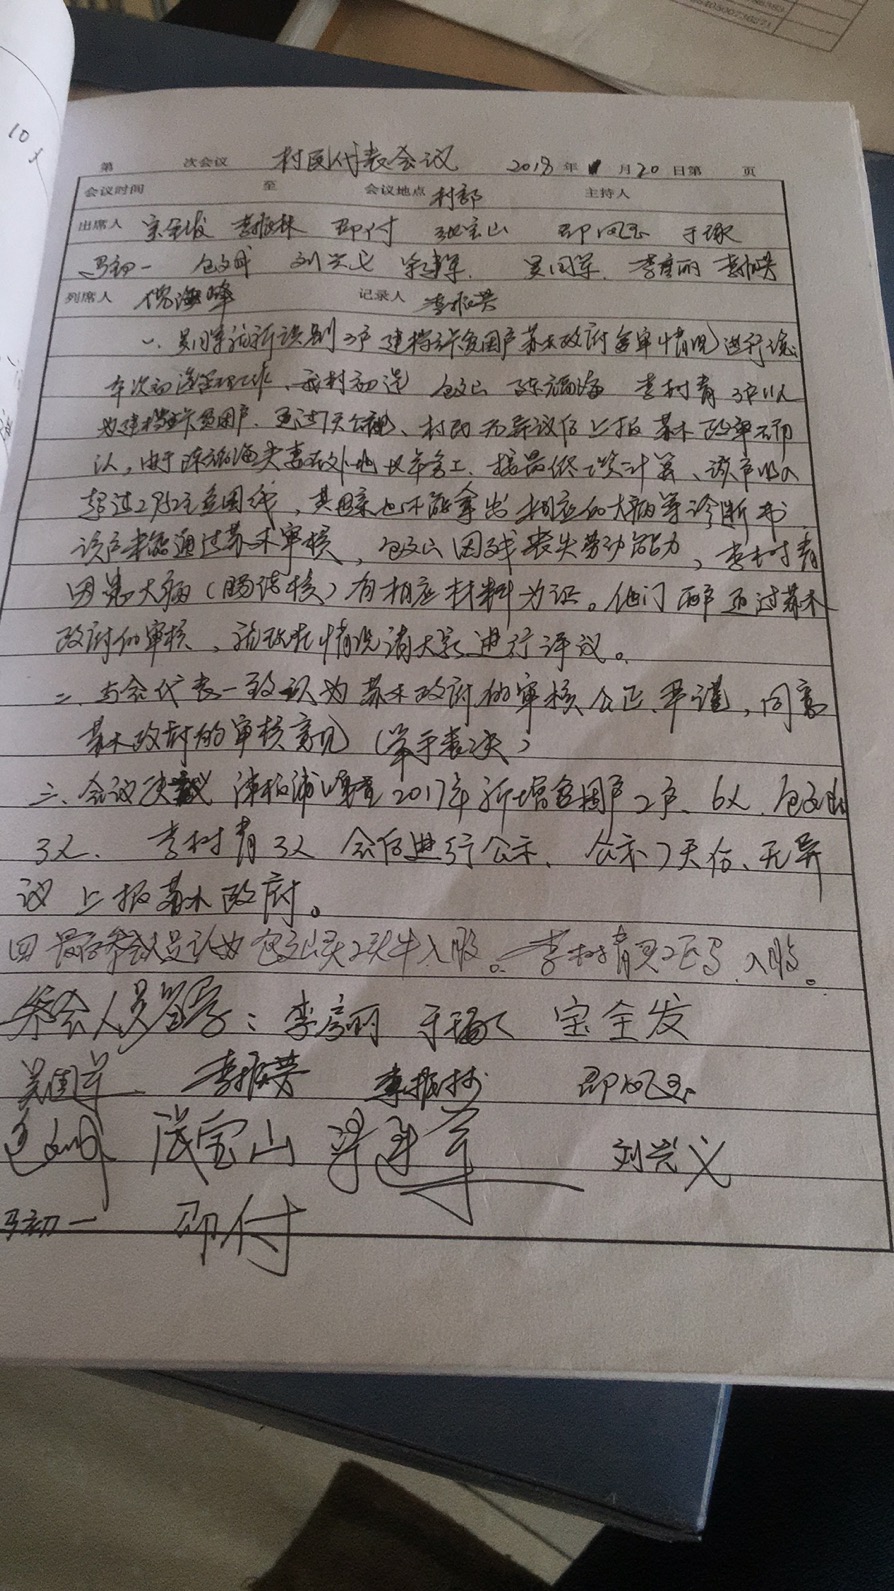 第 次会议 村民代表会议 2018年 月20日第 页
会议时间 至 会议地点 村部 主持人
出席人 宝全发 李振林 邵付 张宝山 邵凤玉 于琢
马初一 包文成 刘兴义 梁建军 吴国军 李彦丽 李振芳
列席人 倪海峰 记录人 李振芳
一、吴国军 新识别2户建档立卡贫困户苏木政府会审情况进行
本次初选 工作、我村初选 包文山 陈福海 李树青 3户以
为建档立卡贫困户、通过7天公视、村民无异议后上报苏木政审
认,由于陈福海夫妻在外地从事务工、按最低 计算、该户收入
超过2952元贫困线,其 也不能拿出相应的大病等诊断书
该户未能通过苏木审核,包文山因残丧失劳动能力,李树青
因患大病(肠结核)有相应材料为证。他门两户通过苏木
政府的审核、 情况请大家进行评议。
二、与会代表一致认为苏木政府的审核公正、严谨,同意
苏木政府的审核意见(举手表决)
三、会议决议 2017年新增贫困户2户、6人、包文山
3人、李树青3人 会后进行公示、公示7天后、无异
议上报苏木政府。
四 最后参会人员认为包文山买2头牛入股。李树青买2匹马入股。
参会人员签字:李彦丽 于琢 宝全发
吴国军 李振芳 李振林 邵凤玉
包文成 张宝山 梁建军 刘兴义
马初一 邵付
10